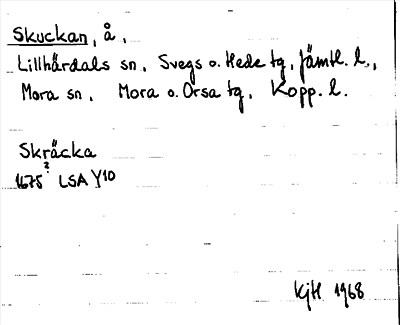 Skuckan, å,
Lillhärdals sn, Svegs o. Hede tg, Jämtl. l.,
Mora sn, Mora o. Orsa tg, Kopp. l.
Skräcka
1675? LSA Y10
KjH 1968